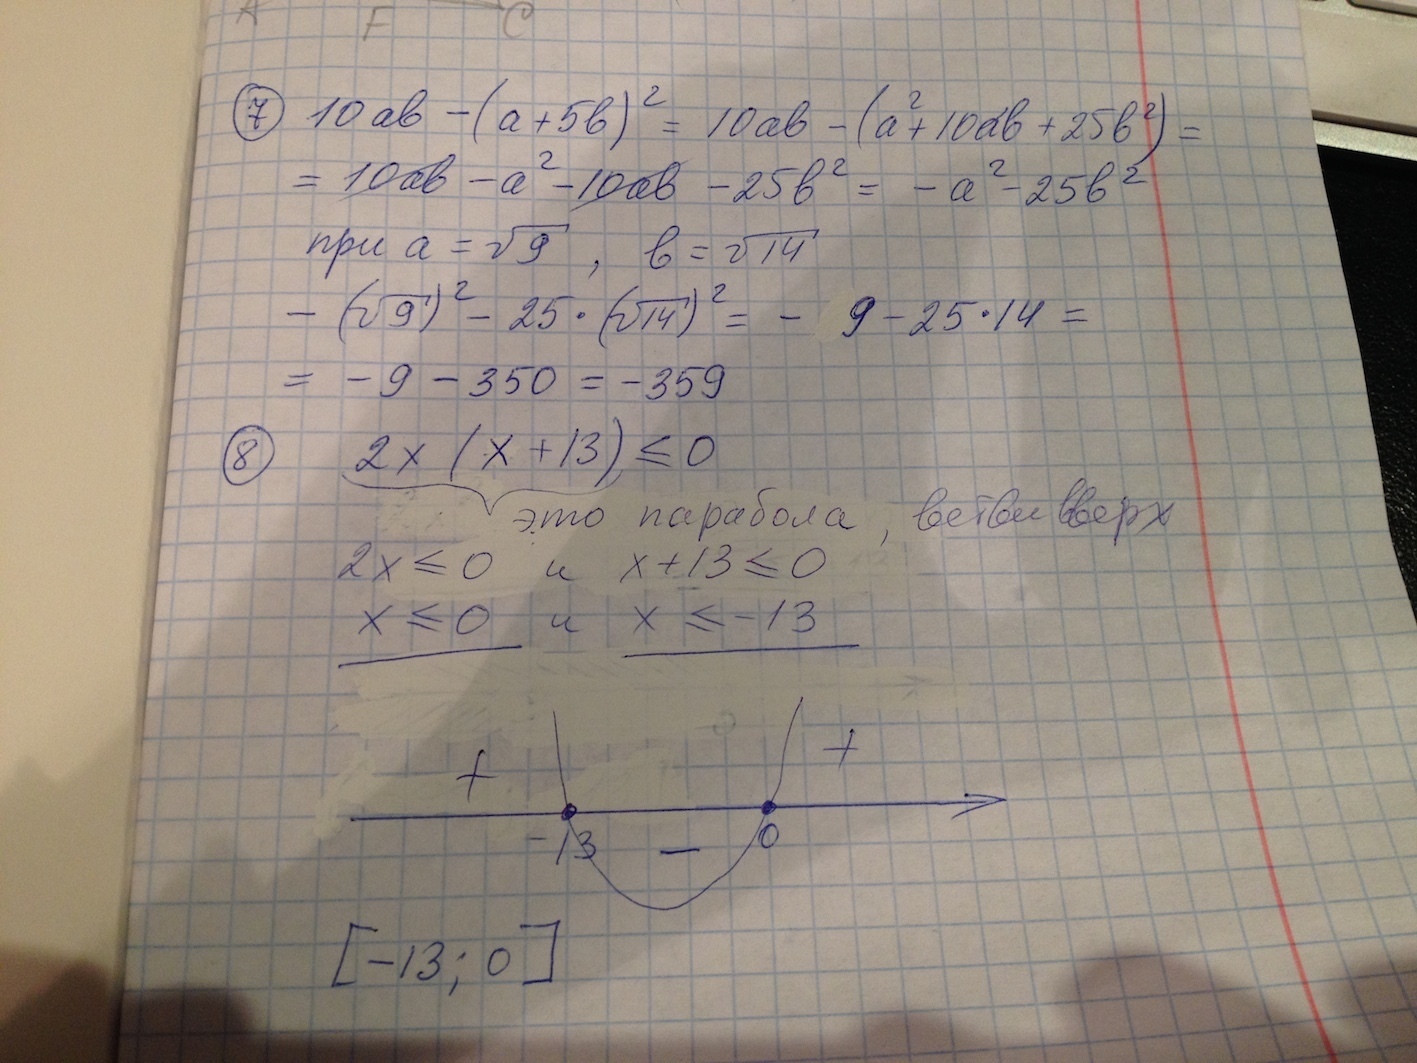 A F C
7 10ab - (a+5b)² = 10ab - (a²+10ab+25b²) =
= 10ab - a² - 10ab - 25b² = - a² - 25b²
при a = √9 , b = √14
- (√9)² - 25·(√14)² = - 9 - 25·14 =
= - 9 - 350 = -359
8 2x (x+13) ≤ 0
это парабола, ветви вверх
2x ≤ 0 и x+13 ≤ 0
x ≤ 0 и x ≤ -13
+ +
-13 - 0
[-13; 0]